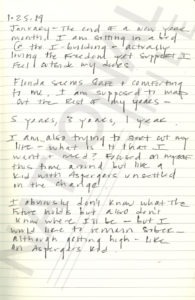 1.25.19
January - The end of a new year
month! I am sitting in a bed
@ the I-building & actually
loving the Freedom yet support I
feel
Florida seems safe & comforting
to me, I am supposed to map
out the Rest of my years -
5 years, 3 years, 1 year
I am also trying to sort out my
life - what is it that I
want & need? Focused on myself
this time around but like a
kid with Aspergers unsettled
on the change!
I obviously don't know what the
Future holds but also don't
know where I'll be - but I
would like to remain sober
although getting high - like
an Aspergers kid!